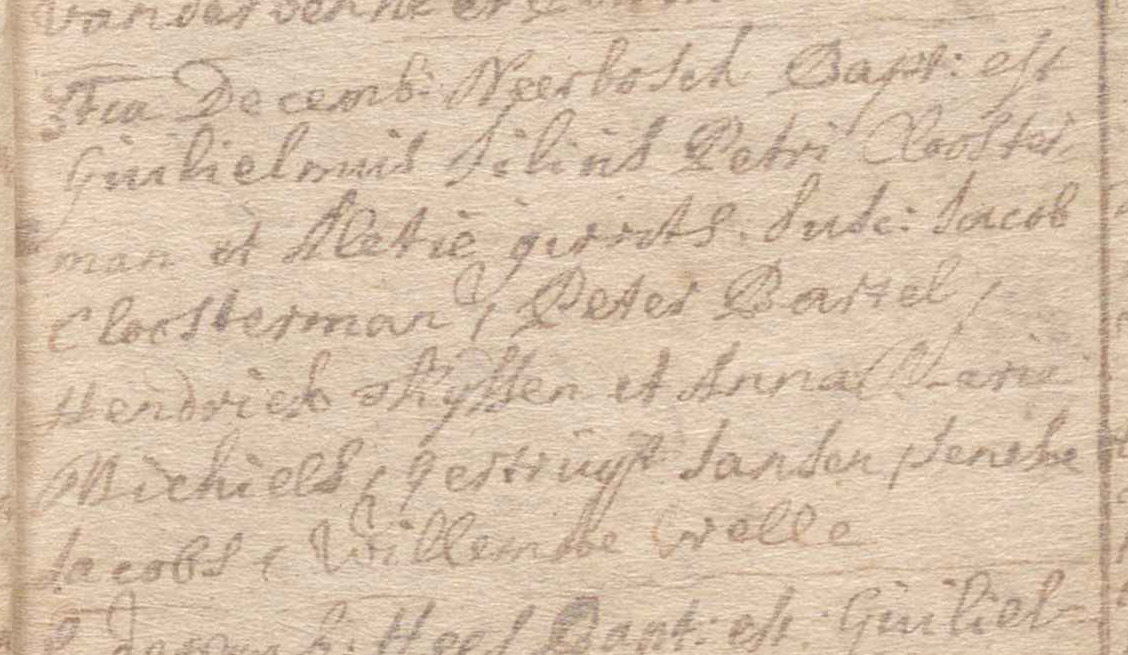 3tia Decemb: Neerbosch Bapt: est
Guilielmus filius Petri Clooster,
man et Aletie gerrits. Susc: Jacob
Cloosterman, Peter Bartel,
Hendrick Thyssen et Anna Marie
Michiels, gertruyt Jansen, Jenske
Jacobs, Willemke Welle
Decemb: Hees Bapt: est. Guiliel-